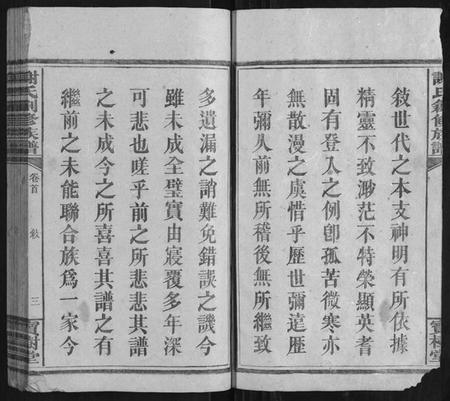 敍世代之本支神明有所依據
精靈不致渺茫不特榮顯英耆
固有登入之例卽孤苦微寒亦
無散漫之虞惜乎歷世彌遠歷
年彌久前無所稽後無所繼致
多遺漏之誚難免錯誤之譏今
雖未成全璧實由寢覆多年深
可悲也嗟乎前之所悲悲其譜
之未成今之所喜喜其譜之有
繼前之未能聯合族爲一家今
謝氏創修族譜
卷首
敘
三
寶樹堂